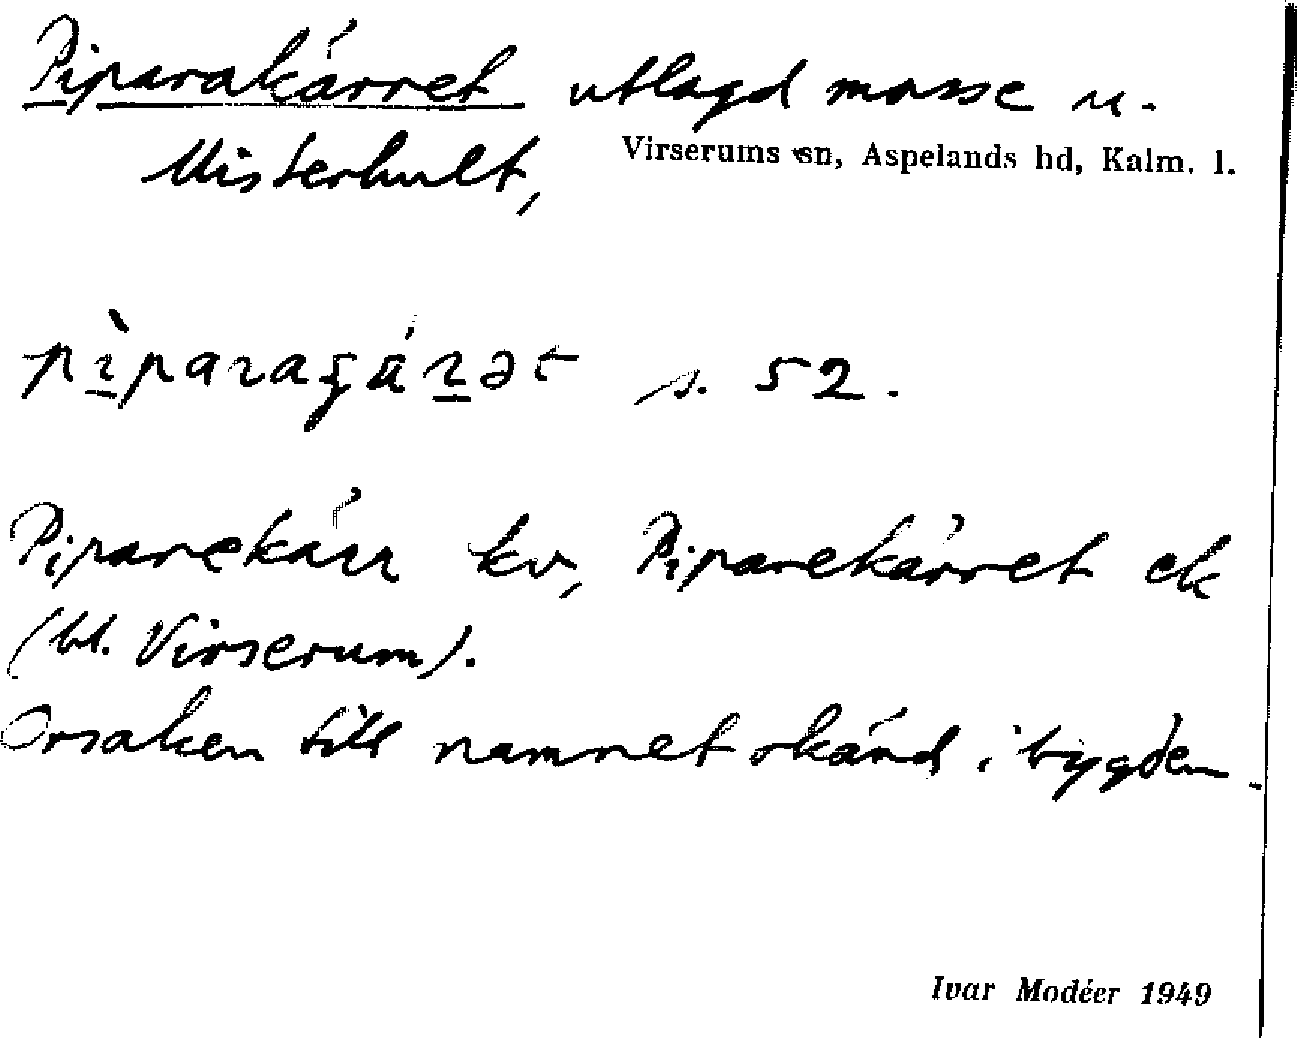 Piparakärret utlagd mosse u.
Misterhult,
Virserums sn, Aspelands hd, Kalm. l.
s. 52.
Piparekärr kv, Piparekärret ek
(bl. Virserum).
Orsaken till namnet okänd i bygden.
Ivar Modéer 1949